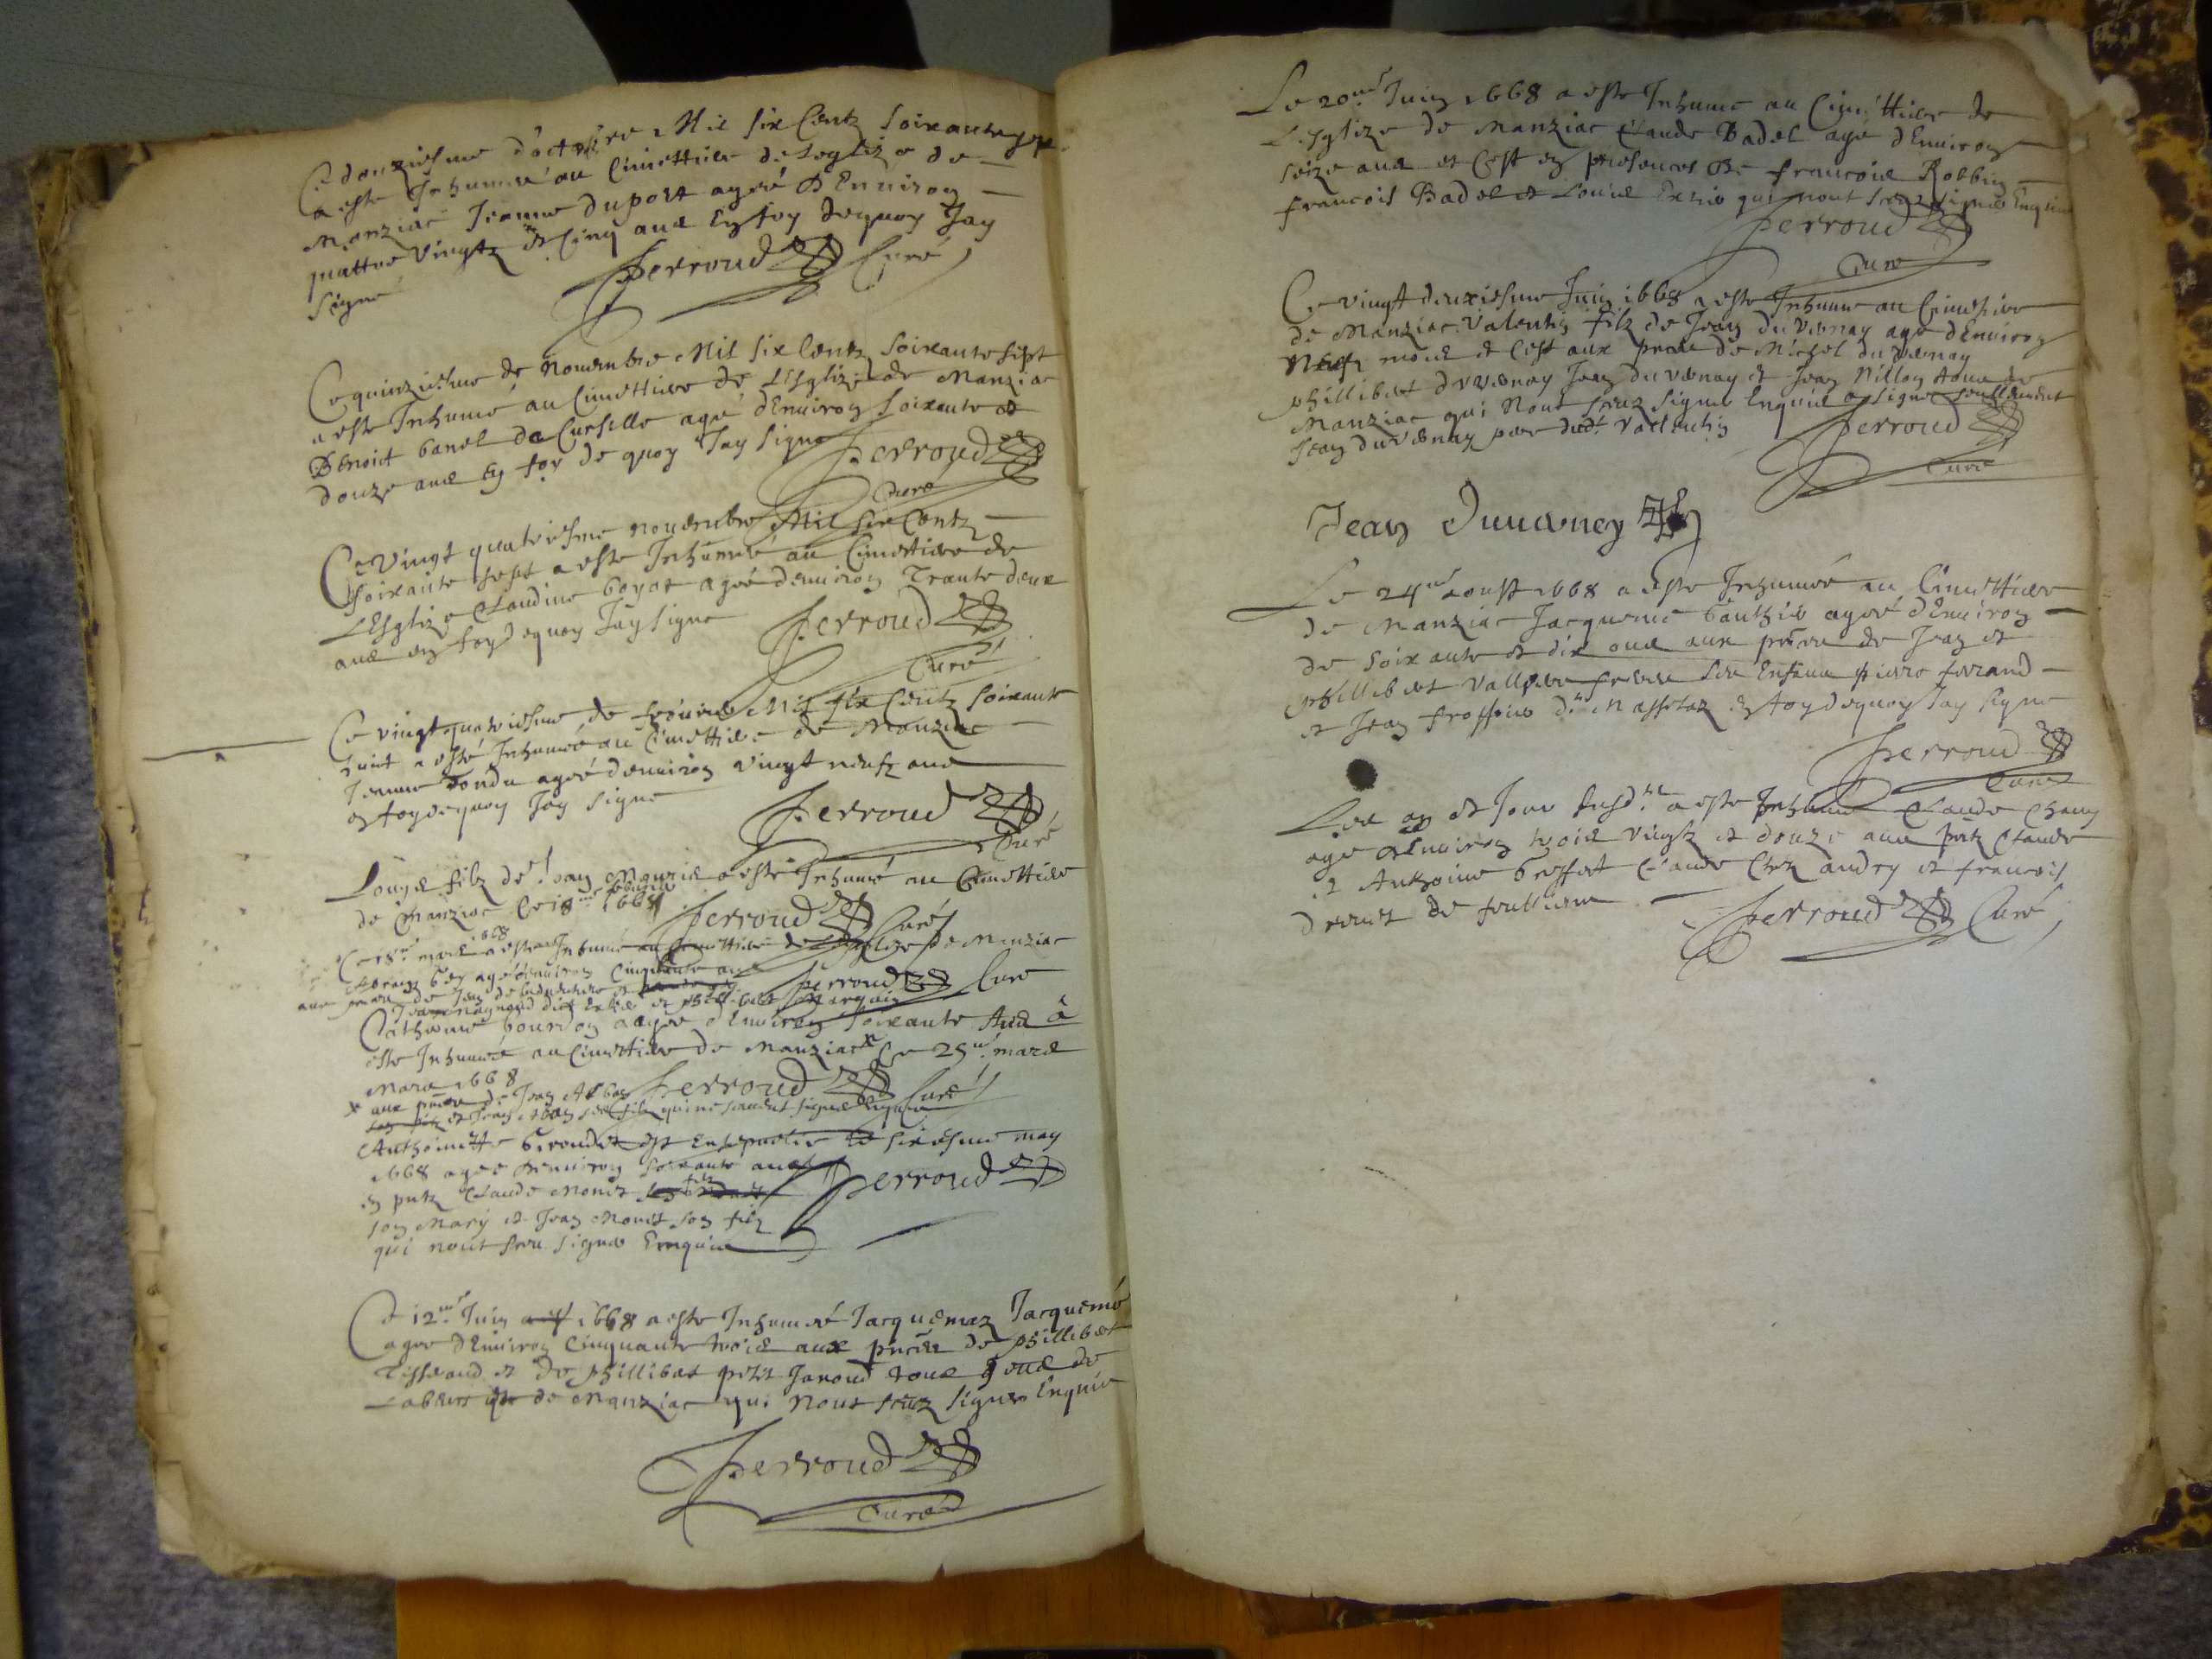 Ce douziesme d'octobre Mil six Centz soixante sept
a este Inhumée au Cimettiere de Leglize de
Manziac Jeanne Duport agée D'Environ
quattre Vingtz et Cinq ans En foy dequoy Jay
signé Perroud Curé
Ce quinziesme de Novembre Mil six Centz soixante sept
a este Inhumé au Cimettiere de L'Esglize de Manziac
Benoict banel de Cursille agé d'Environ soixante et
douze ans En foy de quoy Jay signé Perroud
Curé
Ce Vingt quatriesme novembre Mil six Centz
soixante sept a este Inhumée au Cimettiere de
L'Esglize Claudine boyat agée denviron Trante deux
ans en foy dequoy Jay signe Perroud
Curé
Ce vingt quatriesme de febvrier Mil six Centz soixante
huict a esté Inhumée au Cimettiere de Manziac
Jeanne Tondu agée denviron vingt neufz ans
en foy dequoy Jay signe
Perroud
Curé
Louys filz de Jean a este Inhumé au Cimettiere
de Manziac Ce 18me 1668 Perroud Curé
Ce 18me mars 1668 a este Inhumé au Cimettiere de de Manziac
agé denviron Cinquante ans Perroud Curé
aux prnces de Jean
Catherine bourdon aagée d'Environ soixante Ans a
este Inhumée au Cimettiere de Manziac x Ce 25me mars
Mars 1668 Perroud Curé
x aux prnces de Jean
et Jean son filz qui ne scavent signer Enquis
Anthoinette Girondet est Ensepvelie le sixiesme may
1668 agée denviron soixante ans
en pntz Claude Monet Perroud
son Mary et Jean Monet son filz
qui nont sceu signer Enquis
Ce 12me Juin 1668 a este Inhumée Jacquemaz Jacquemé
agée d'Environ Cinquante trois aux prnces de Phillibert
Tisserand et de Phillibert petit Janoud tous deux de
de Manziac qui Nont sceuz signer Enquis
Perroud
Curé
Le 20me Juin 1668 a este Inhumé au Cimettiere de
L'Esglize de Manziac Claude Badel agé d'Environ
seize ans et Cest en presences De francois Robbin
francois Badel et Louis qui nont sceuz signer Enquis
Perroud
Curé
Ce vingt deuxiesme Juin 1668 a este Inhumé au Cimetiere
de Manziac Valentin filz de Jean du Vernay agé d'Environ
Neufz mois et Cest aux prnces de Michel du vernay
phillibert duvernay Jean duvernay et Jean Nillon tous de
Manziac qui Nont sceuz signer Enquis a signé seullement
Jean duvernay pere dudt Vallentin Perroud
Curé
Jean Duverney
Le 24me aoust 1668 a este Inhumée au Cimettiere
de Manziac Jacqueme Gauthier agée d'Environ
de soixante et dix ans aux prnces de Jean et
Phillibert Vallier freres ses Enfans pierre ferrand
et Jean frossiere En foy dequoy Jay signe
Perroud
Curé
Les an et Jour susd. a este Inhumé Claude Chany
agé denviron trois vingtz et douze ans pntz Claude
et Anthoine Claude Chez andry et francois
drevet de
Perroud Curé